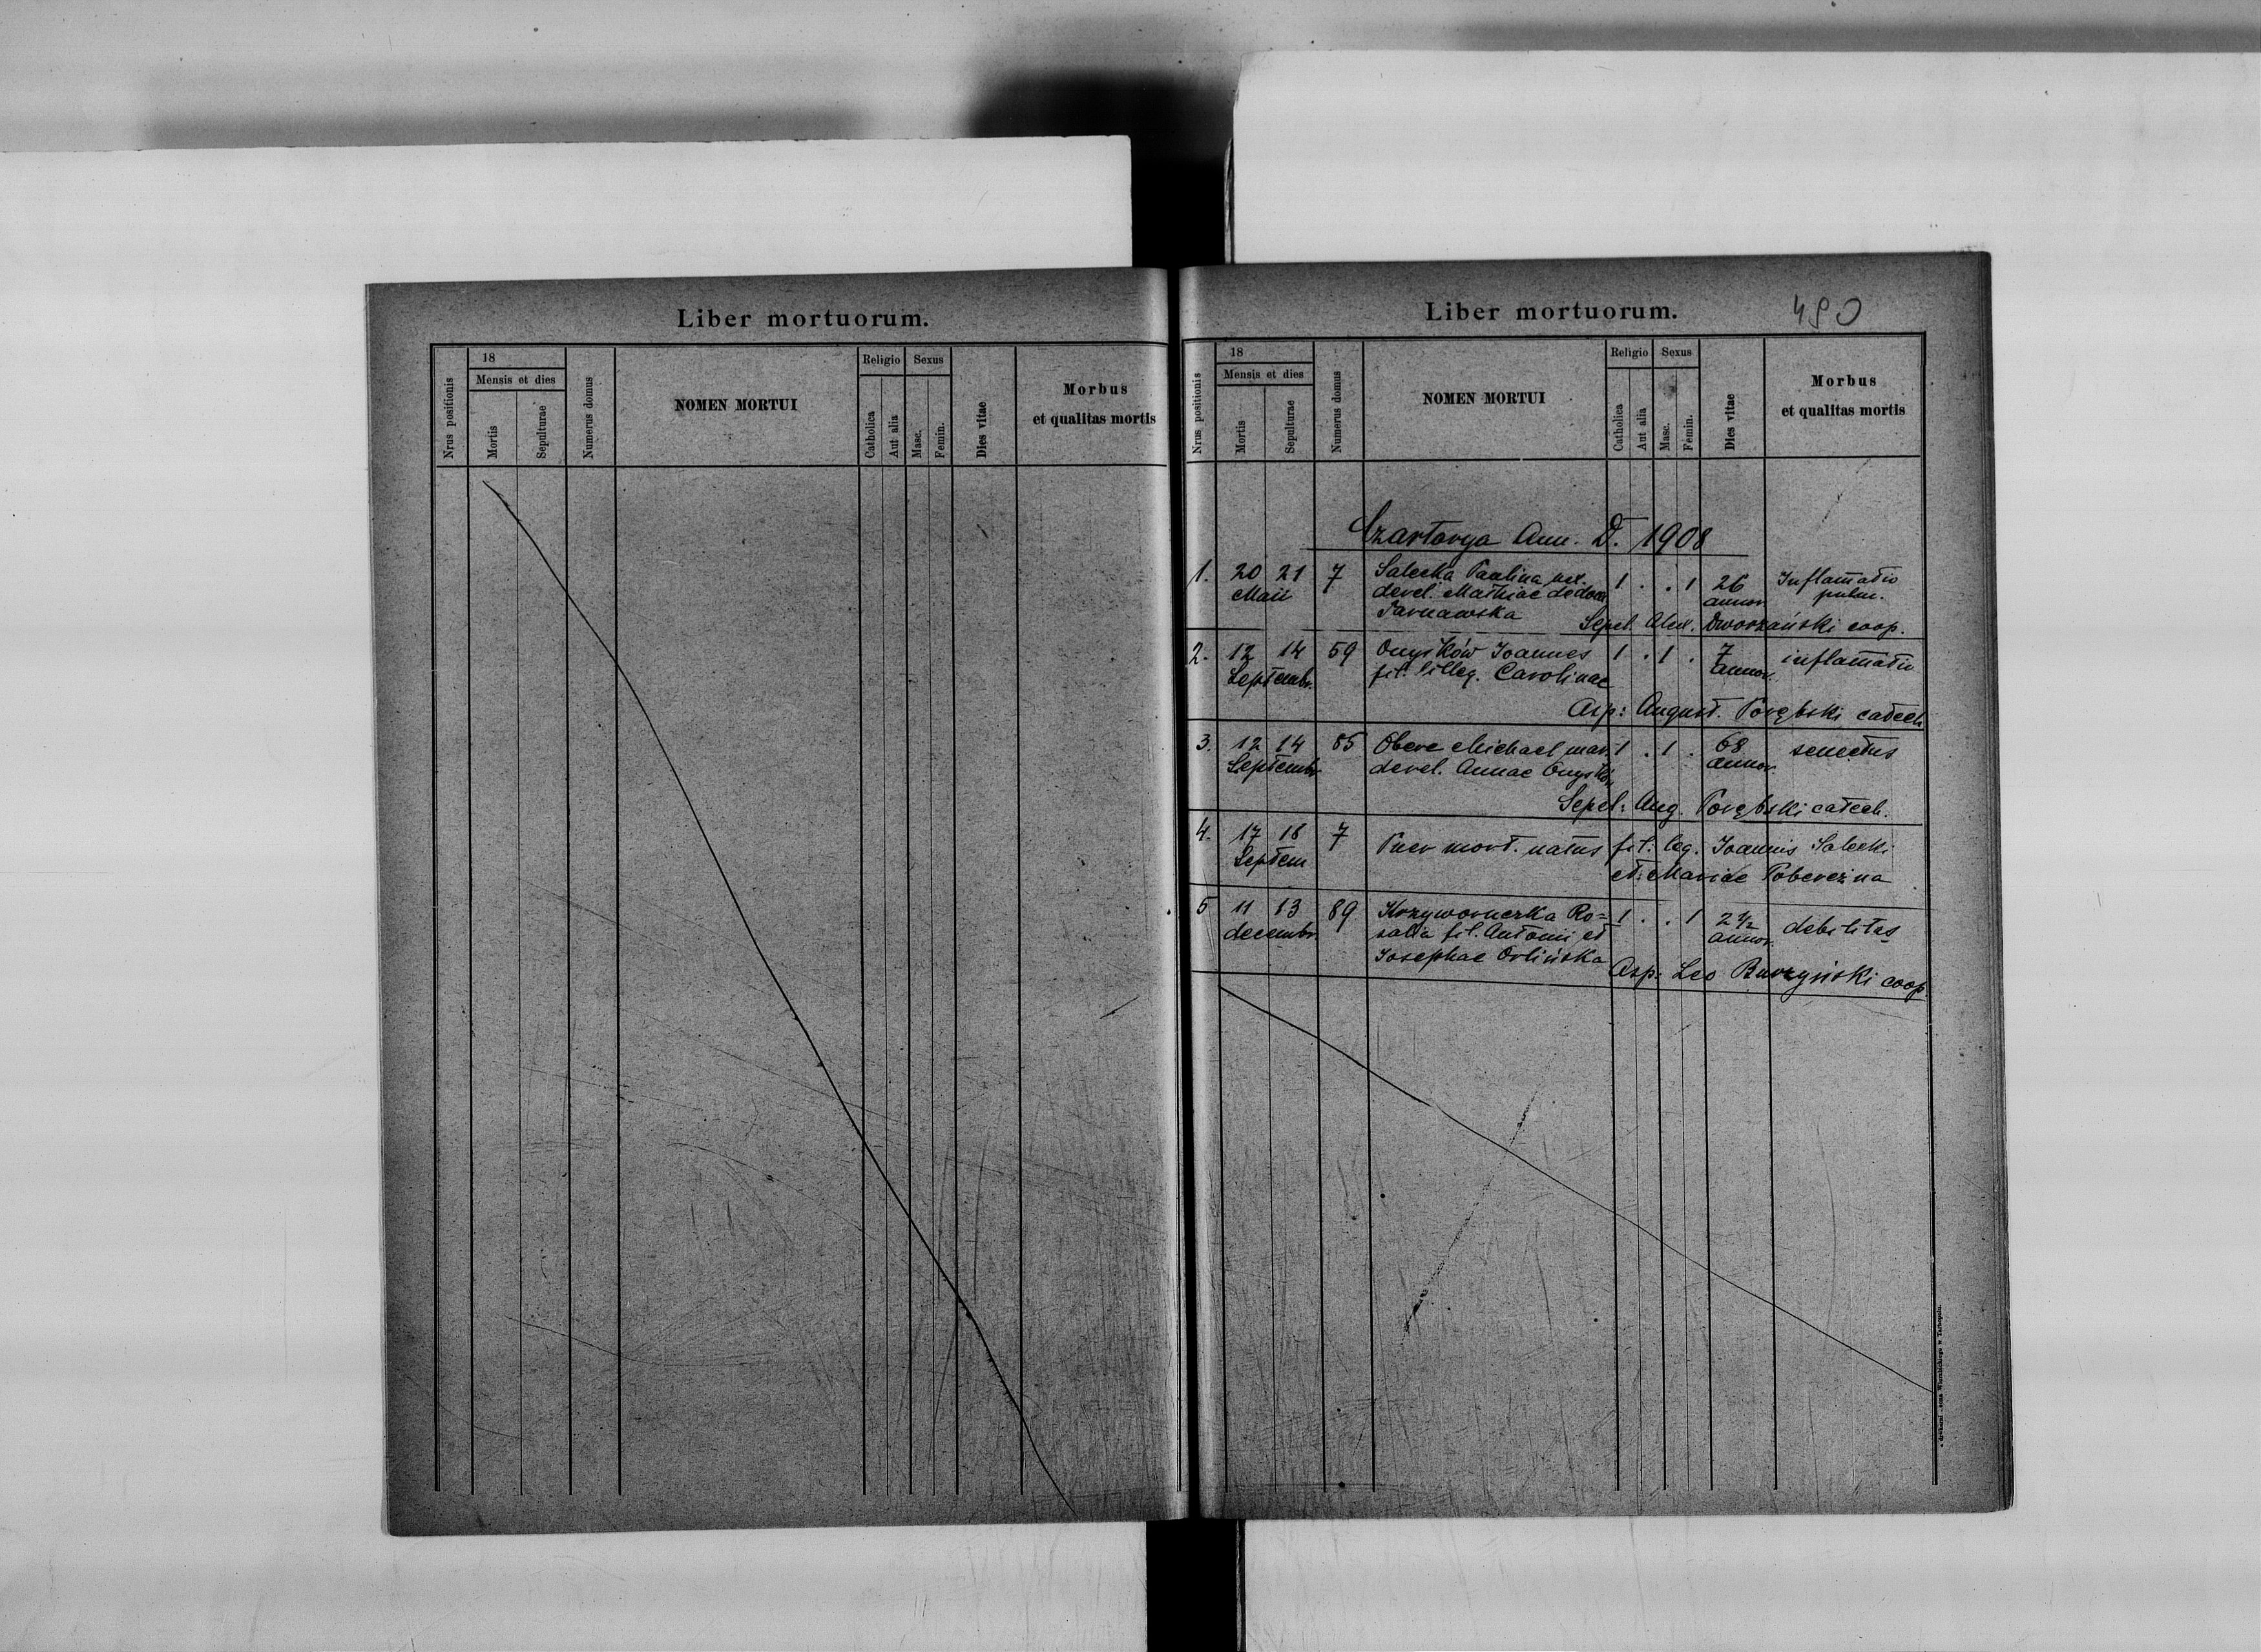 Liber mortuorum.
Nrus positionis
18
Mensis et dies
Mortis
Sepulturae
Numerus domus
NOMEN MORTUI
Religio
Catholica
Aut alia
Sexus
Masc.
Femin.
Dies vitae
Morbus
et qualitas mortis
Liber mortuorum.
490
Nrus positionis
18
Mensis et dies
Mortis
Sepulturae
Numerus domus
NOMEN MORTUI
Religio
Catholica
Aut alia
Sexus
Masc.
Femin.
Dies vitae
Morbus
et qualitas mortis
Czartorya Ann. D. 1908
1. 20 21 7 Salecka Paulina ux. 1 . . 1 26 Inflamatio
Maii derel. Mathiae de domo annor. pulm.
Tarnawska
Sepel. Alex. Dworzański coop.
2. 12 14 59 Onyśków Joannes 1 . 1 . 7 inflamatio
Septembr. fil. illeg. Carolinae annor.
Asp: August. Porębski catech
3. 12 14 85 Obere Michael mar. 1 . 1 . 68 senectus
Septembr derel. Annae Onyśków annor.
Sepel: Aug. Porębski catech.
4. 17 18 7 Puer mort. natus fil: leg. Joannis Salecki
Septem et Mariae Poberezna
5 11 13 89 Krzyworuczka Ro= 1 . . 1 2 1/2 debilitas
decembr. salia fil. Antonii et annor.
Josephae Orlińska
Asp: Leo Burzyński coop.